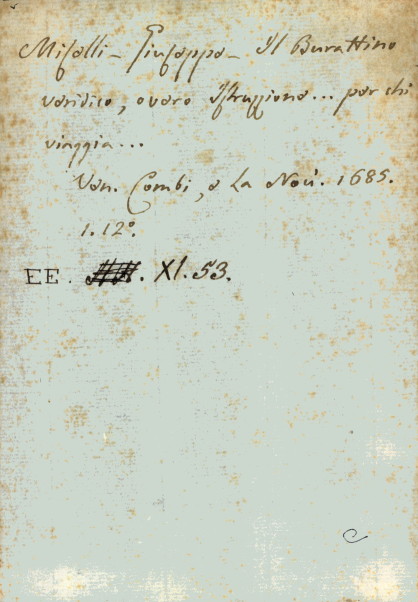 Miselli - Giuseppe - Il Burattino
veridico, overo Istruzzione... per chi
viaggia...
Ven. Combi, e La Noù. 1685.
1. 12°.
EE. XI. 53.